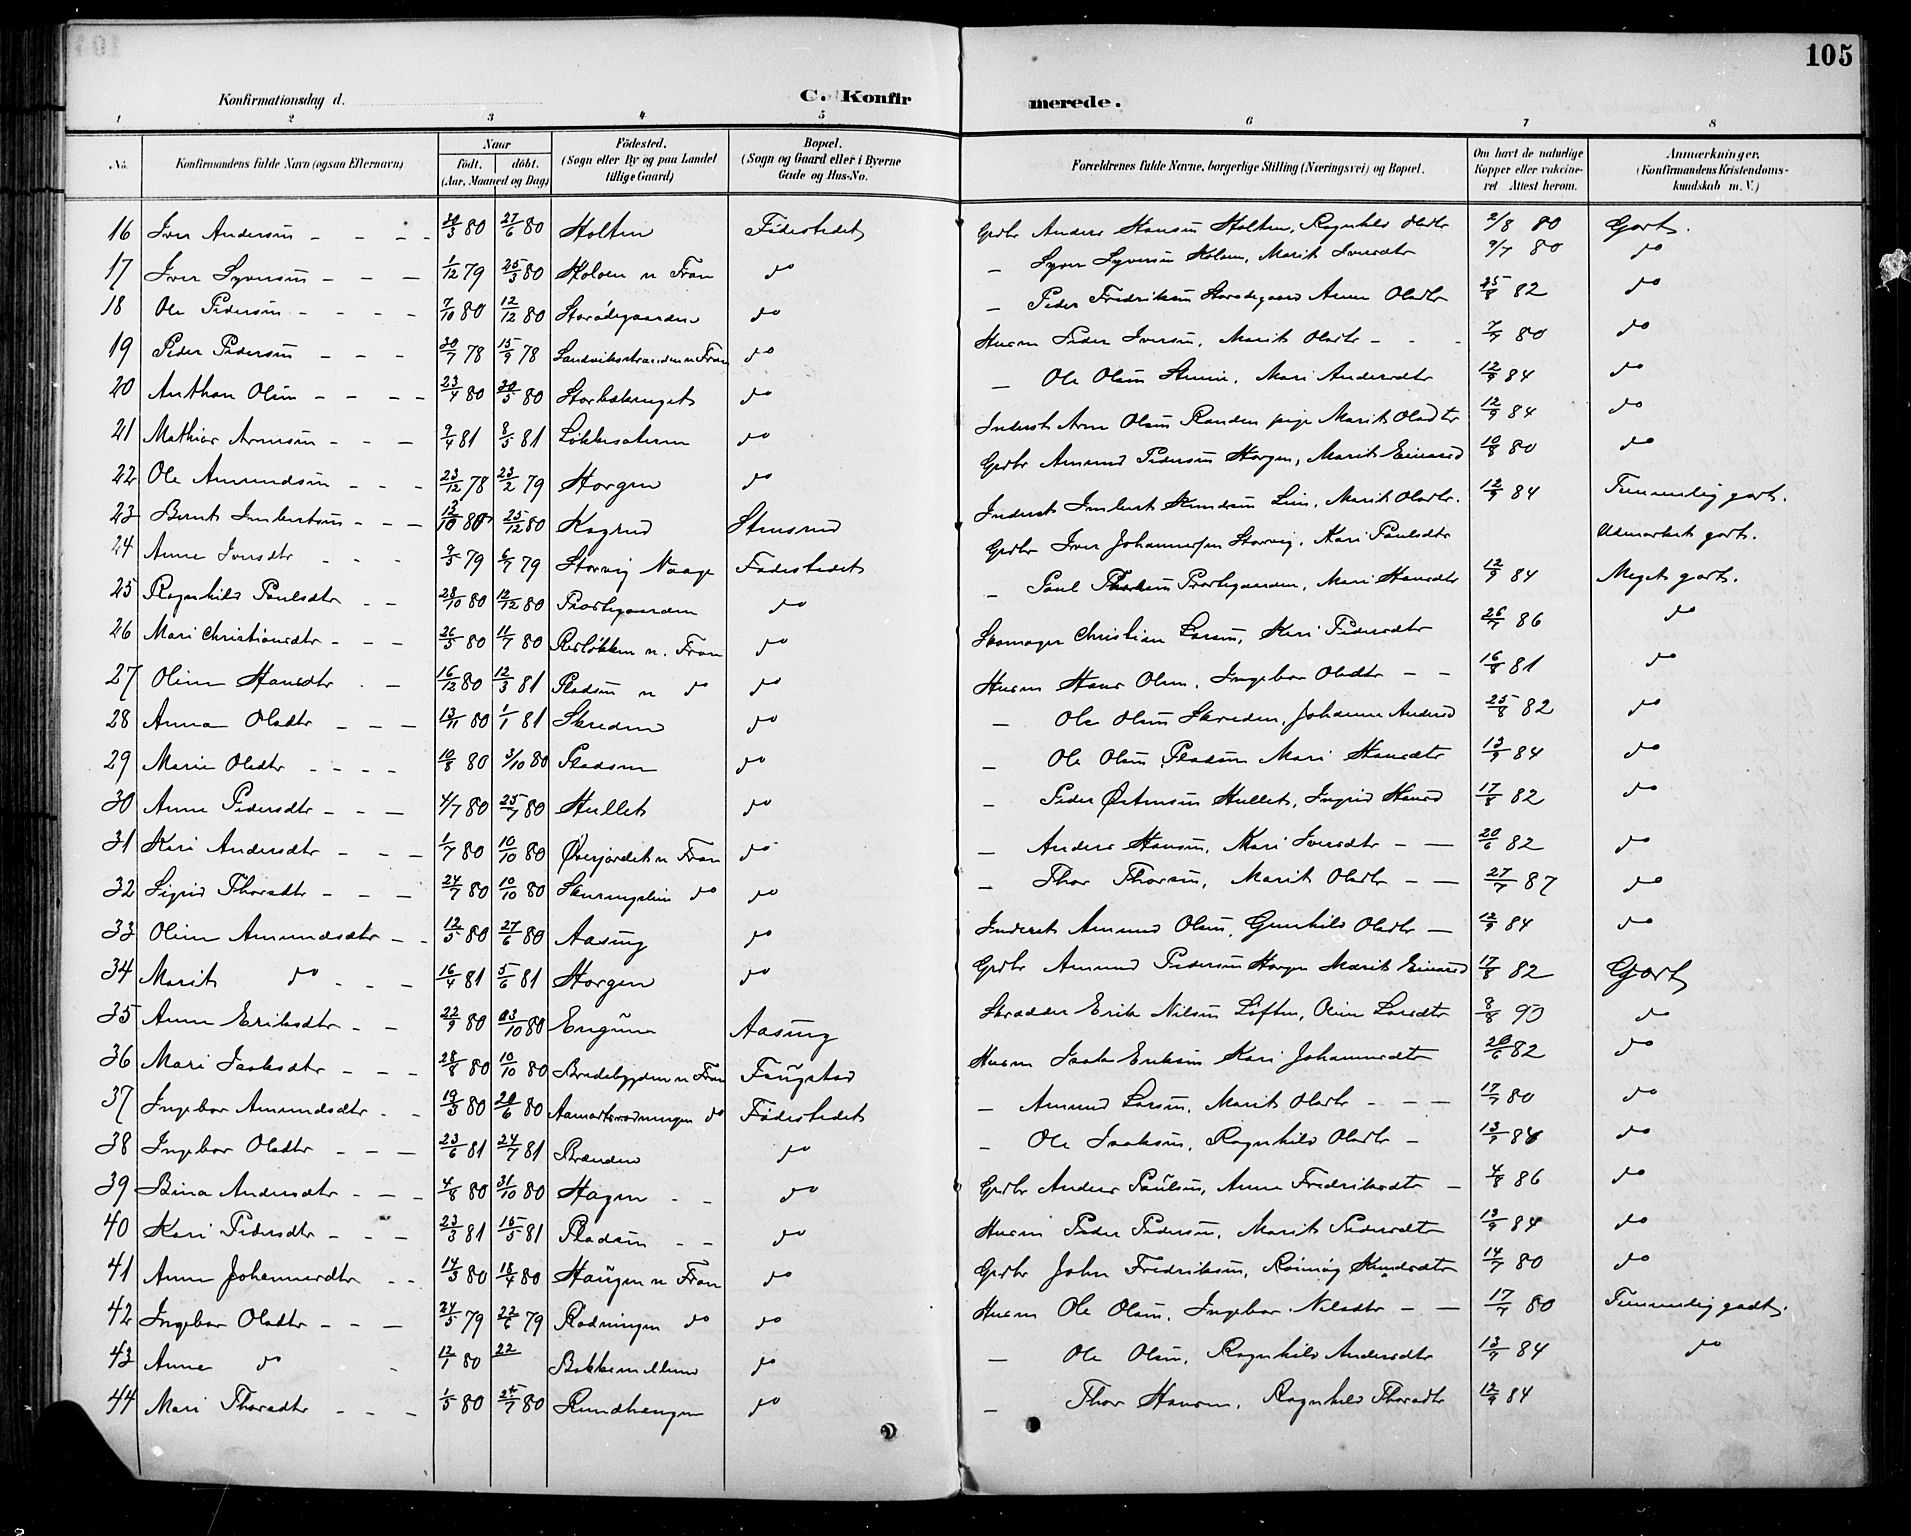 105
Konfirmationsdag d.
C. Konfirmerede.
1 2 3 4 5 6 7 8
No. Konfirmandens fulde Navn (ogsaa Efternavn) Naar født. døbt. (Aar, Maaned og Dag) Fødested. (Sogn eller By og paa Landet tillige Gaard) Bopæl. (Sogn og Gaard eller i Byerne Gade og Hus-No. Forældrenes fulde Navne, borgerlige Stilling (Næringsvei) og Bopæl. Om havt de naturlige Kopper eller vakcineret Attest herom. Anmærkninger. (Konfirmandens Kristendomskundskab m. V.)
16 Iver Andersen 30/3 80 27/6 80 Holten Fødestedet Grdbr Anders Hansen Holten, Ragnhild Olsdtr 2/8 80 Godt.
17 Iver Syversen 1/12 79 25/3 80 Koloen n Fron do Syver Syversen Koloen, Marit Iversdtr 9/7 80 do
18 Ole Pedersen 7/10 80 12/12 80 Storødegaarden do Peder Fredriksen Storødegaard Anne Olsdtr 25/8 82 do
19 Peder Pedersen 30/7 78 15/9 78 Sandviksstranden n Fron do Husm Peder Iversen, Marit Olsdtr 7/7 80 do
20 Anthon Olsen 23/4 80 30/5 80 Storbækeneget do Ole Olsen, Mari Andersdtr 12/9 84 do
21 Mathias Arnesen 9/4 81 8/5 81 Løkkesæteren do Inderst Arne Olsen Randen pige Marit Olsdtr 12/9 84 do
22 Ole Amundsen 23/12 78 23/2 79 Horgen do Grdbr Amund Pedersen Horgen, Marit Einarsd 10/8 80 do
23 Bernt Imbertsen 13/10 80 25/12 80 Kogrud Stensrud Inderst Imbert Knudsen Lien, Marit Olsdtr. 12/9 84 Temmelig godt.
24 Anne Iversdtr 9/5 79 6/7 79 Storvig Vaage Fødestedet Grdbr Iver Johannessen Storvig, Kari Paulsdtr Udmærket godt.
25 Ragnhild Paulsdtr 28/10 80 12/12 80 Prostegaarden do Paul Prostegaarden, Mari Hansdtr 12/9 84 Meget godt.
26 Mari Christiansdtr 26/5 80 11/7 80 n. Fron do Skomager Christian Larsen, Kari Pedersdtr 26/7 86 do
27 Oline Hansdtr 16/12 80 12/3 81 Pladsen n do do Husm Hans Olsen, Ingebor Olsdtr 16/8 81 do
28 Anna Olsdtr 13/11 80 1/1 81 Skreden do Ole Olsen Skreden, Johanne Andersd 25/8 82 do
29 Marie Olsdtr 10/8 80 3/10 80 Pladsen do Ole Olsen Pladsen Mari Hansdtr 13/9 84 do
30 Anne Pedersdtr 4/7 80 25/7 80 Hullet do Peder Østensen Hullet, Ingrid Hansd 17/8 82 do
31 Kari Andersdtr 1/7 80 10/10 80 Øverjordet n Fron do Anders Hansen, Mari Iversdtr 20/6 82 do
32 Sigrid Thorsdtr 24/7 80 10/10 80 do do Thor Thorsen, Marit Olsdtr 27/7 87 do
33 Oline Amundsdtr 12/5 80 27/6 80 Aasing do Inderst Amund Olsen, Gunhild Olsdtr 12/9 84 do
34 Marit do 16/4 81 5/6 81 Horgen do Grdbr Amund Pedersen Horgen Marit Einarsd 17/8 82 Godt
35 Anne Eriksdtr 22/9 80 03/10 80 Engum Aasing Skrædder Erik Nilsen Løften, Oline Larsdtr 8/8 90 do
36 Mari Isaksdtr 28/8 80 10/10 80 Brædebygden n Fron Faugstad Husm Isak Eriksen Kari Johannesdtr 20/6 82 do
37 Ingebor Amundsdtr 19/3 80 20/6 80 do Fødestedet Amund Larsen, Marit Olsdtr 17/7 80 do
38 Ingebor Olsdtr 23/6 81 24/7 81 Brænden do Ole Isaksen, Ragnhild Olsdtr 13/9 84 do
39 Bina Andersdtr 4/8 80 31/10 80 Hagen do Grdbr Anders Paulsen, Anne Fredriksdtr 4/8 86 do
40 Kari Pedersdtr 23/3 81 15/5 81 Pladsen do Husm Peder Pedersen, Marit Pedersdtr 13/9 84 do
41 Anne Johannesdtr 14/3 80 18/4 80 Haugen n Fron do Grdbr John Fredriksen, Rønnaug Knudsdtr 14/7 80 do
42 Ingebor Olsdtr 24/5 79 22/6 79 Rodningen do do Husm Ole Olsen, Ingebor Nilsdtr 17/7 80 Temmelig godt.
43 Anne do 12/1 80 22 Bakkemellem do Ole Olsen, Ragnhild Andersdtr 13/9 84 do
44 Mari Thorsdtr 1/5 80 25/7 80 Rundhaugen do Thor Hansen, Ragnhild Thorsdtr 12/9 84